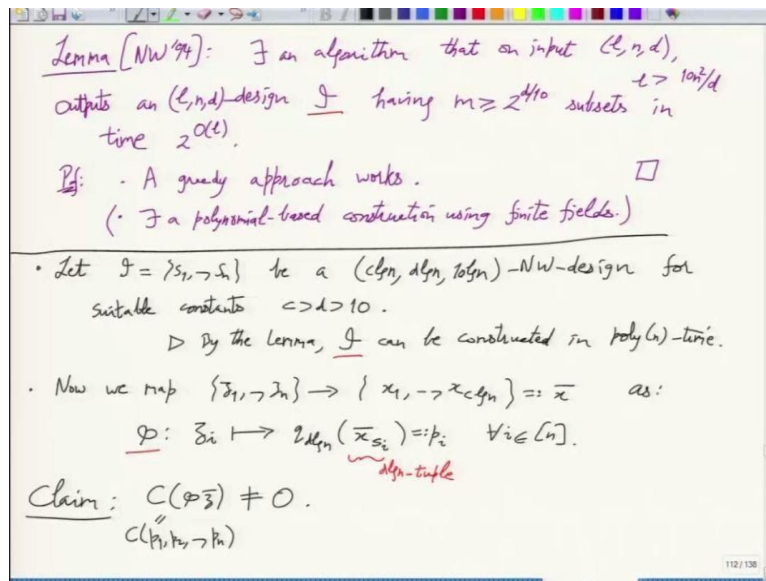 Lemma [NW'94]: ∃ an algorithm that on input (ℓ,n,d),
ℓ > 10n²/d
outputs an (ℓ,n,d)-design I having m ≥ 2^{d/10} subsets in
time 2^{O(ℓ)}.
Pf: · A greedy approach works. □
(· ∃ a polynomial-based construction using finite fields.)
· Let I = {S₁,→Sₙ} be a (clgn, dlgn, 10lgn)-NW-design for
suitable constants c>d>10.
▷ By the lemma, I can be constructed in poly(n)-time.
· Now we map {z₁,→zₙ} → {x₁,→x_{clgn}} =: x̄ as:
φ: zᵢ ↦ q_{dlgn}(x̄_{Sᵢ}) =: pᵢ ∀i∈[n].
dlgn-tuple
Claim: C(φz̄) ≠ 0.
"
C(p₁,p₂,→pₙ)
112 / 138